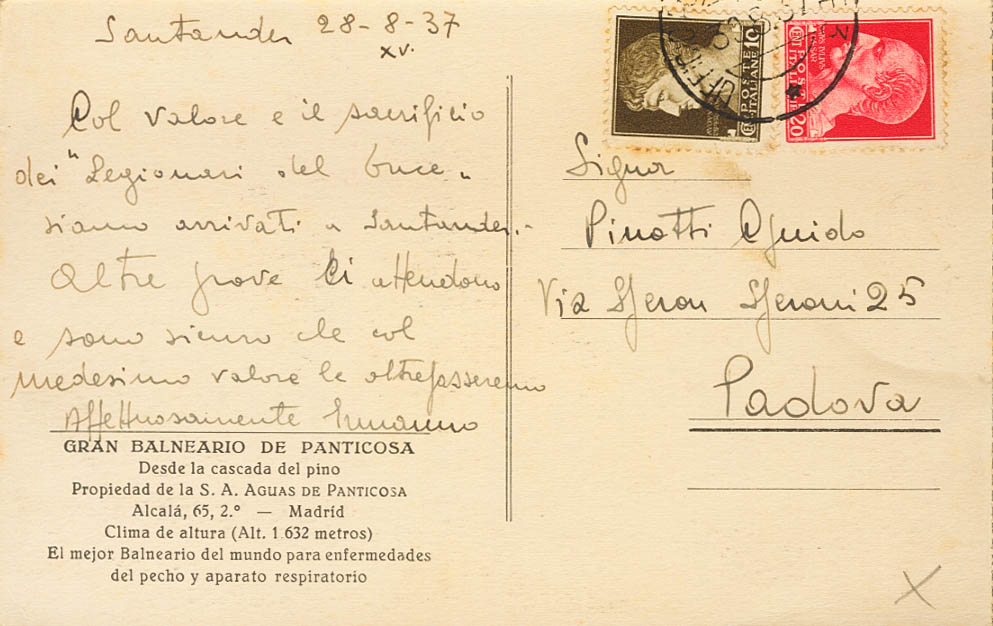 Santander 28-8-37
XV.
Col valore e il sacrificio
dei "Legionari del Duce"
siamo arrivati a Santander.-
Altre prove ci attendono
e sono sicuro che col
medesimo valore le oltrepasseremo
Affettuosamente Ermanno
GRAN BALNEARIO DE PANTICOSA
Desde la cascada del pino
Propiedad de la S. A. AGUAS DE PANTICOSA
Alcalá, 65, 2.º — Madrid
Clima de altura (Alt. 1.632 metros)
El mejor Balneario del mundo para enfermedades
del pecho y aparato respiratorio
POSTE ITALIANE
CENT 10
POSTE ITALIANE
CENT 20
Signor
Pinotti Guido
Via Speron Speroni 25
Padova
X